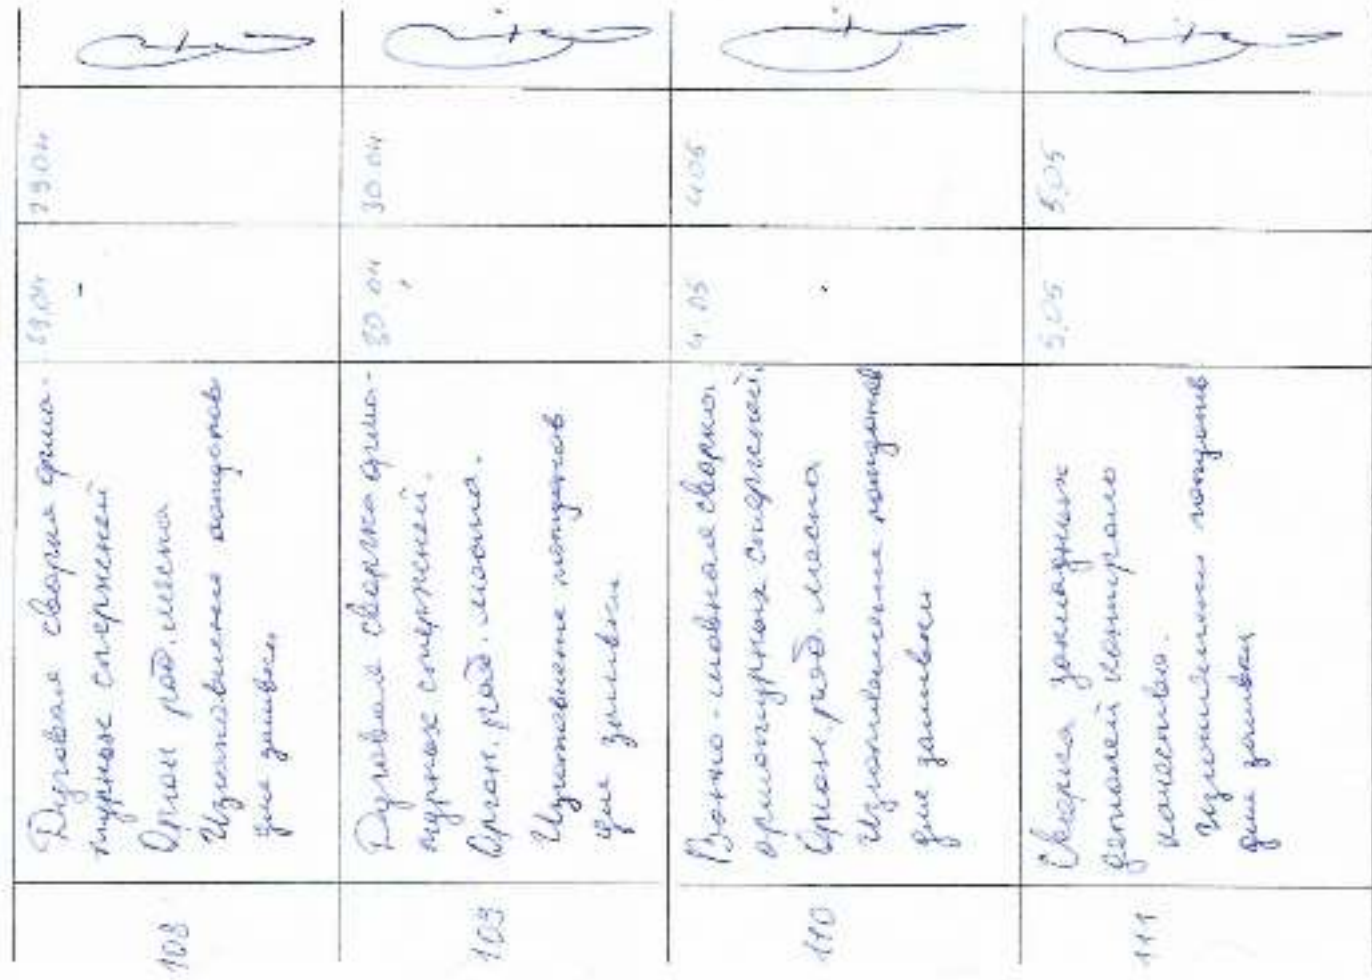 108
Дуговая сварка арма-
турных стержней
Орган. раб. места
Изготовление поддонов
для заливки
29.04
29.04
109
Дуговая сварка арма-
турных стержней.
Орган. раб. места.
Изготовление поддонов
для заливки
30.04
30.04
110
Ванно-шовная сварка
арматурных стержней
Орган. раб. места
Изготовление поддонов
для заливки
4.05
4.05
111
Сварка закладных
деталей контроль
качества.
Изготовление поддонов
для заливки
5.05
5.05